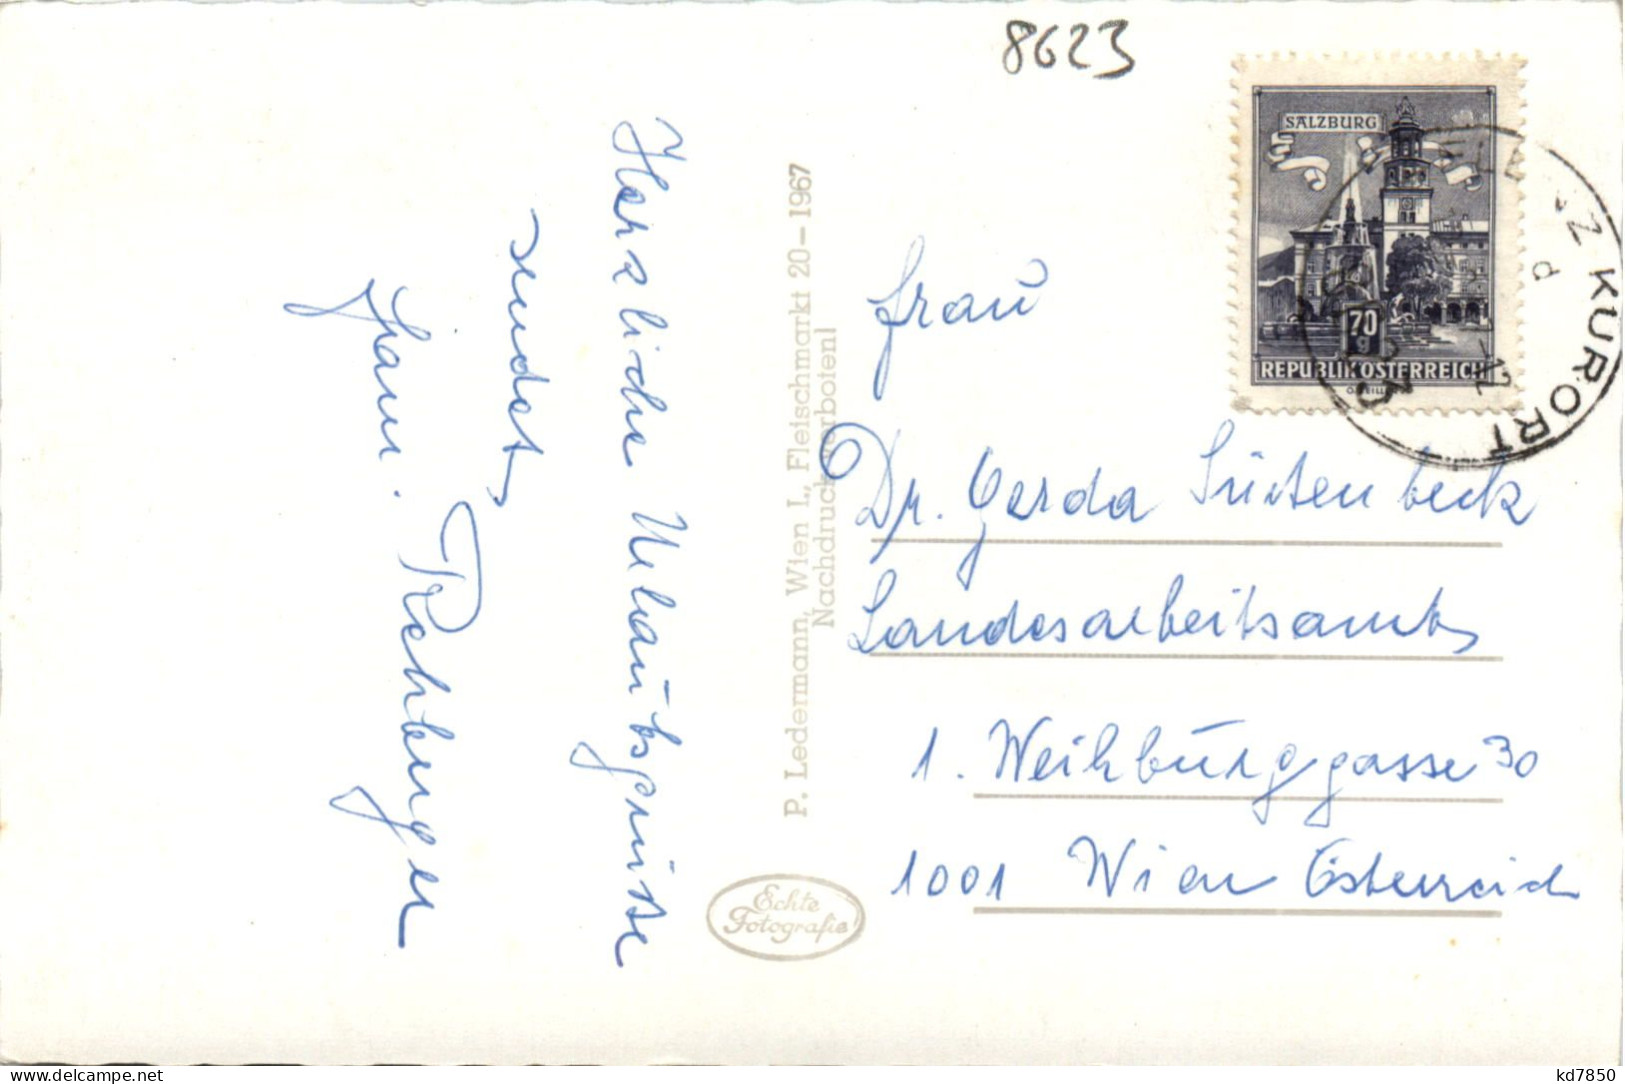 8623
SALZBURG
70
g
REPUBLIK ÖSTERREICH
KURORT
Herzliche Urlaubsgrüße
sendet
Fam. Rehberger
P. Ledermann, Wien I., Fleischmarkt 20–1967
Nachdruck verboten!
Echte
Fotografie
Frau
Dr. Gerda
Landesarbeitsamt
1. Weihburggasse 30
1001 Wien Österreich
kd7850